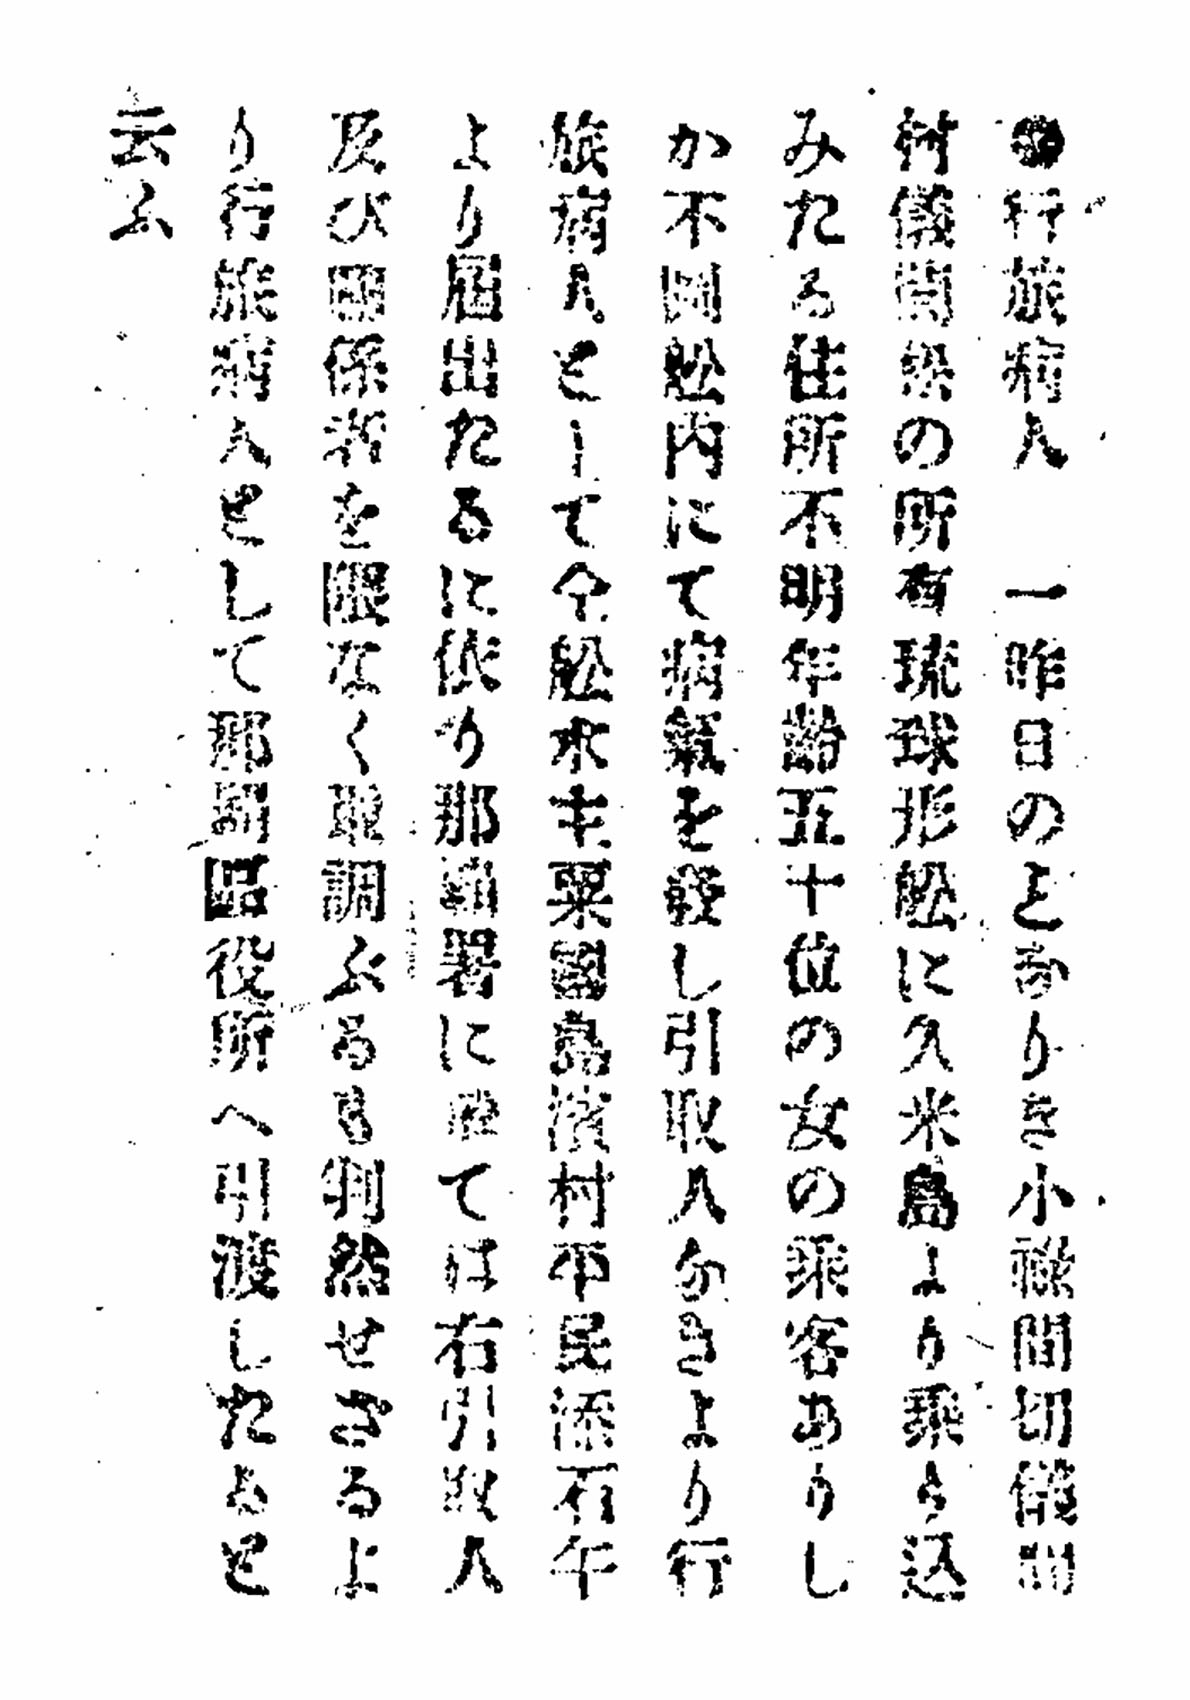 ●行旅病人　一昨日のとかりき小禄間切儀間
村儀間某の所有琉球形舩に久米島より乗り込
みたる住所不明年齢五十位の女の乗客ありし
か不図舩内にて病氣を發し引取人なきより行
旅病人として今舩水主粟國島濱村平民添石午
より届出たるに依り那覇署に於ては右引取人
及び関係者を隈なく取調ぶるも判然せざるよ
り行旅病人として那覇區役所へ引渡したると
云ふ